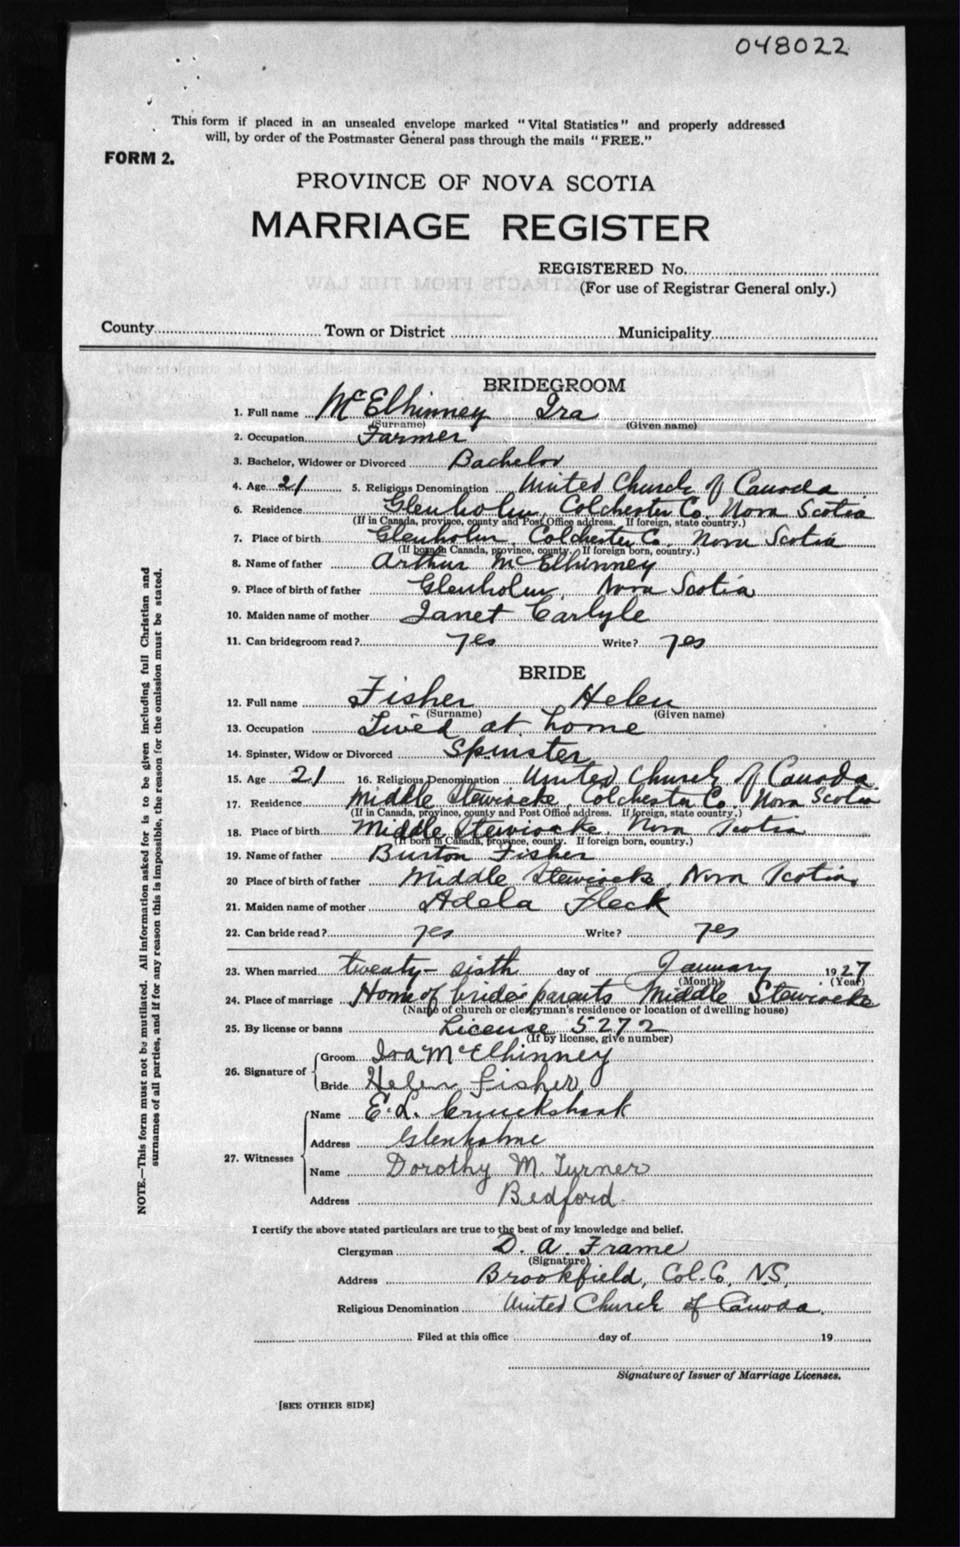 048022
This form if placed in an unsealed envelope marked "Vital Statistics" and properly addressed
will, by order of the Postmaster General pass through the mails "FREE."
FORM 2.
PROVINCE OF NOVA SCOTIA
MARRIAGE REGISTER
REGISTERED No.
(For use of Registrar General only.)
County Town or District Municipality
BRIDEGROOM
1. Full name McElhinney Ira
(Surname) (Given name)
2. Occupation Farmer
3. Bachelor, Widower or Divorced Bachelor
4. Age 21 5. Religious Denomination United Church of Canada
6. Residence Glenholm, Colchester Co. Nova Scotia
(If in Canada, province, county and Post Office address. If foreign, state country.)
7. Place of birth Glenholm, Colchester Co. Nova Scotia
(If born in Canada, province, county. If foreign born, country.)
8. Name of father Arthur McElhinney
9. Place of birth of father Glenholm, Nova Scotia
10. Maiden name of mother Janet Carlyle
11. Can bridegroom read? yes Write? yes
BRIDE
12. Full name Fisher Helen
(Surname) (Given name)
13. Occupation Lived at home
14. Spinster, Widow or Divorced Spinster
15. Age 21 16. Religious Denomination United Church of Canada
17. Residence Middle Stewiacke, Colchester Co. Nova Scotia
(If in Canada, province, county and Post Office address. If foreign, state country.)
18. Place of birth Middle Stewiacke, Nova Scotia
(If born in Canada, province, county. If foreign born, country.)
19. Name of father Burton Fisher
20 Place of birth of father Middle Stewiacke, Nova Scotia,
21. Maiden name of mother Adela Fleck
22. Can bride read? yes Write? yes
23. When married twenty-sixth day of January 1927
(Month) (Year)
24. Place of marriage Home of bride's parents Middle Stewiacke
(Name of church or clergyman's residence or location of dwelling house)
25. By license or banns License 5272
(If by license, give number)
26. Signature of Groom Ira McElhinney
Bride Helen Fisher
27. Witnesses Name E. L. Cruickshank
Address Glenholme
Name Dorothy M. Turner
Address Bedford
I certify the above stated particulars are true to the best of my knowledge and belief.
Clergyman D. A. Frame
(Signature)
Address Brookfield, Col. Co. N.S.
Religious Denomination United Church of Canada.
Filed at this office day of 19
Signature of Issuer of Marriage Licenses.
[SEE OTHER SIDE]
NOTE.—This form must not be mutilated. All information asked for is to be given including full Christian and
surnames of all parties, and if for any reason this is impossible, the reason for the omission must be stated.